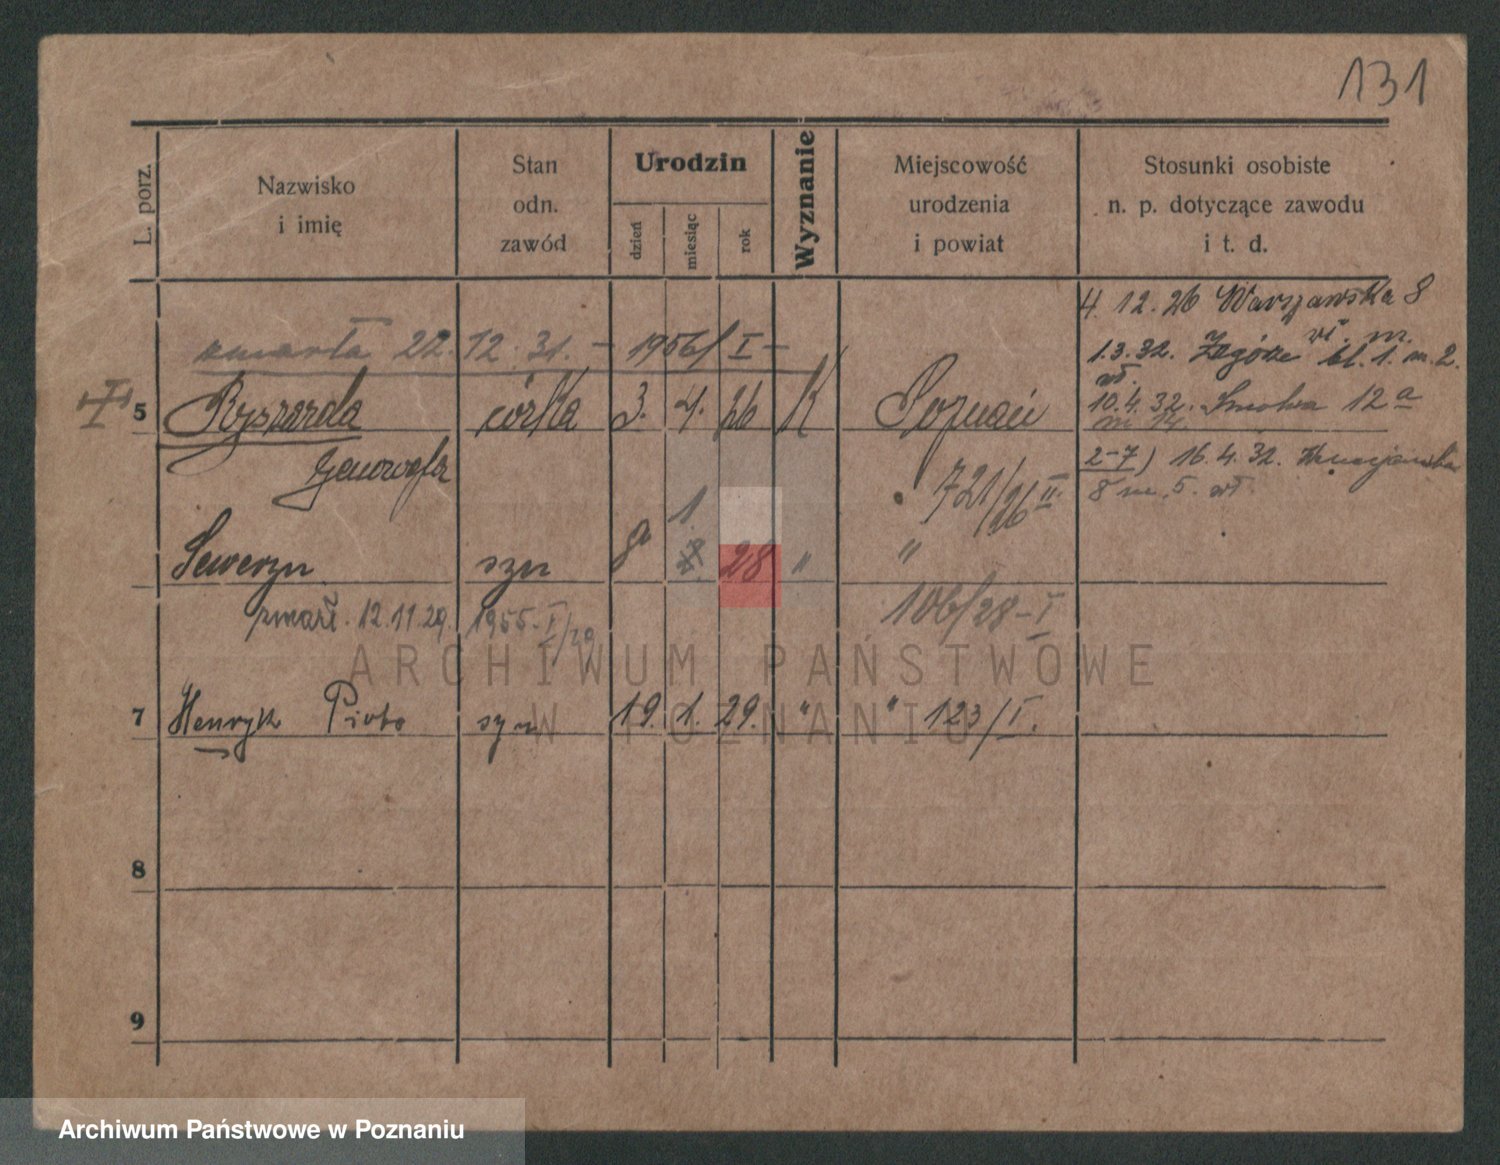 131
L. porz.
Nazwisko i imię
Stan odn. zawód
Urodzin
dzień
miesiąc
rok
Wyznanie
Miejscowość urodzenia i powiat
Stosunki osobiste n. p. dotyczące zawodu i t. d.
4. 12. 26 Warszawska 8
wł. m.
zmarła 22. 12. 31. – 1956/I –
1.3.32. Zagórze bl. 1. m. 2.
wł.
5 Ryszarda córka 3. 4. 26 K Poznań
10.4.32. Smolna 12a
m 14
Genowefa
721/26 II.
2-7) 16.4.32.
8 m. 5. wł.
1.
Seweryn syn 8. 28 " "
zmarł. 12.11.29. 1955-I/29
106/28-I
7 Henryk Piotr syn 19. 1. 29. " " 123/I.
8
9
ARCHIWUM PAŃSTWOWE
W POZNANIU
Archiwum Państwowe w Poznaniu